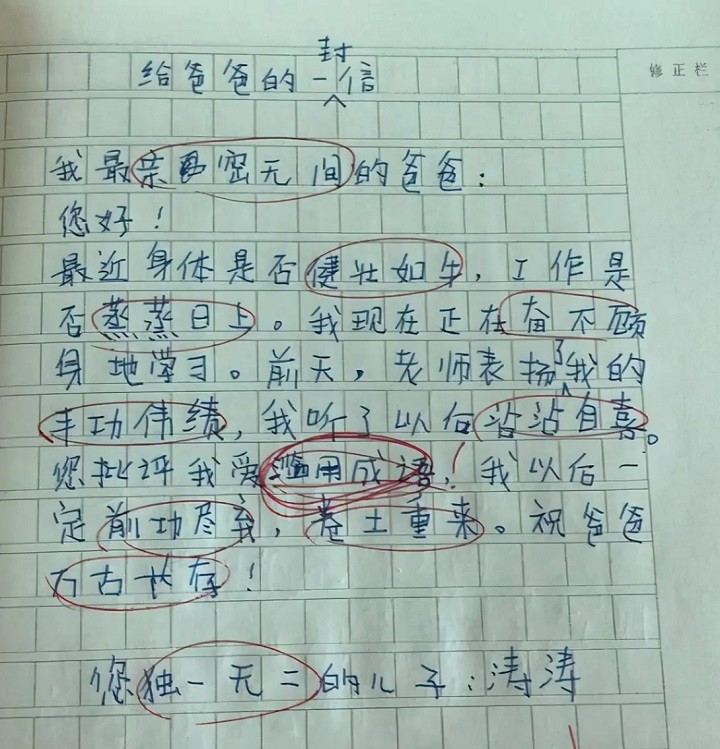 给爸爸的一封信
修正栏
我最亲密无间的爸爸：
您好！
最近身体是否健壮如牛，工作是
否蒸蒸日上。我现在正在奋不顾
身地学习。前天，老师表扬了我的
丰功伟绩，我听了以后沾沾自喜。
您批评我爱滥用成语！我以后一
定前功尽弃，卷土重来。祝爸爸
万古长存！
您独一无二的儿子：涛涛